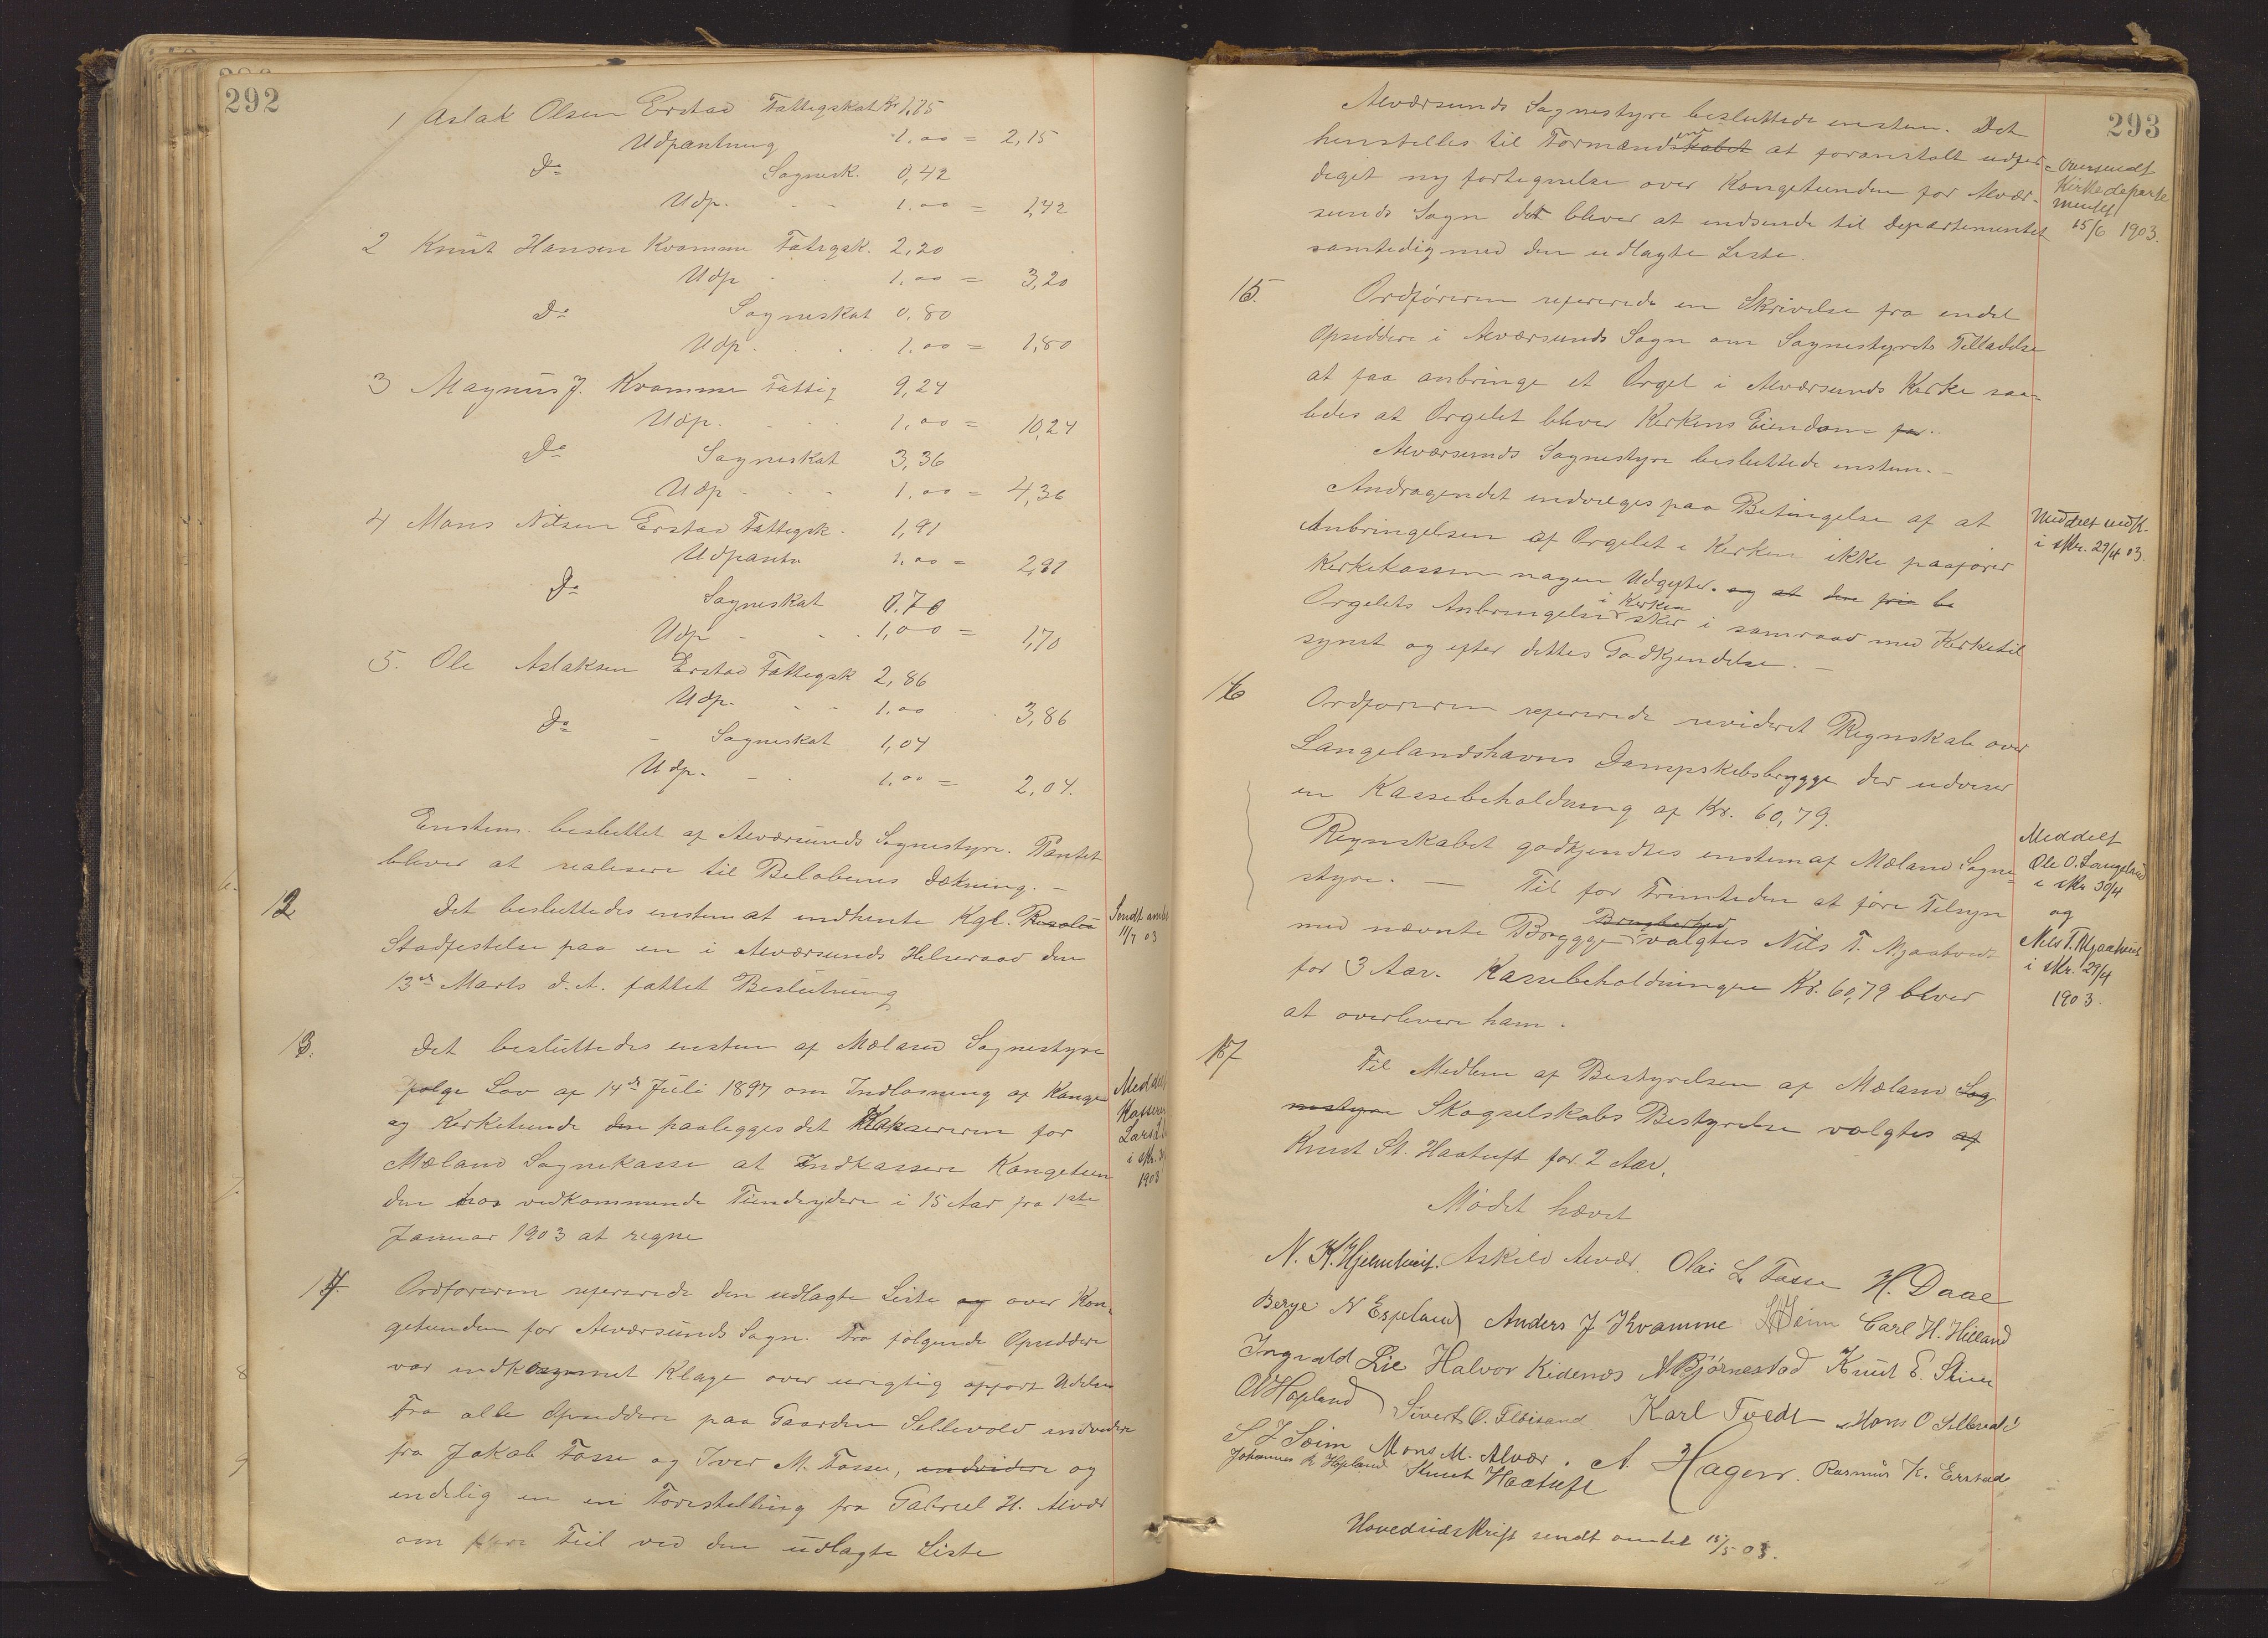 292
1 Aslak Olsen Erstad Fattigskat Kr 1,15
Udpantning 1.00 = 2,15
Do Sognesk. 0,42
Udp. - - 1.00 = 1,42
2 Knut Hansen Kvamme Fatigsk. 2,20
Udp - 1,00 = 3,20
Do Sogneskat 0,80
Udp. . . . 1.00 = 1,80
3 Magnus J. Kvamme Fattig 9,24
Udp. . . 1,00 = 10,24
Do Sogneskat 3,36
Udp - - - 1,00 = 4,36
4 Mons Nilsen Erstad Fattigsk. 1,91
Udpantn 1,00 = 2,91
Do Sogneskat 0.70
Udp - - . 1,00 = 1,70
5. Ole Aslaksen Erstad Fattigsk 2,86
Udp. - - 1.00 . 3,86
Do - Sogneskat 1,04
Udp. - - 1.00 = 2,04.
Enstem. besluttet af Alværsunds Sognestyre. Pantet
bliver at realisere til Beløbenes Dækning. -
12
Det besluttedes enstem at indhente Kgl. Resolu
Stadfestelse paa en i Alværsunds Helseraad den
13de Marts d.A. fattet Beslutning
Sendt amtet
11/7 03
13.
Det besluttedes enstem af Mæland Sognestyre
ifølge Lov af 14de Juli 1897 om Indløsning af Konge
og Kirketiende den paalegges det Kasereren for
Mæland Sognekasse at Indkassere Kongetien
den hos vedkommende Tiendeydere i 15 Aar fra 1ste
Januar 1903 at regne
Meddelt
Kasserer
Lars
i skr.
1903
14.
Ordføreren refererede den udlagte Liste og over Kon-
getienden for Alværsunds Sogn. Fra følgende Opsiddere
var indkommet Klage over urigtig opført
Fra alle Opsiddere paa Gaarden Sellevold endvidere
fra Jakob Fosse og Iver M. Fosse, endvidere og
endelig en en Forestilling fra Gabriel H. Alvær
om flere Feil ved den udlagte Liste
293
Alværsunds Sognestyre besluttede enstem. Det
henstilles til Formændskabet at foranstalt udfær-
diget ny fortegnelse over Kongetienden for Alvær-
sunds Sogn der bliver at indsende til Departementet
samtidig med den udlagte Liste.
Oversendt
Kirkedeparte
mentet
15/6 1903.
15.
Ordføreren refererede en Skrivelse fra endel
Opsiddere i Alværsunds Sogn om Sognestyrets Tilladelse
at faa anbringe et Orgel i Alværsunds Kirke saa-
ledes at Orgelet bliver Kirkens Eiendom for.
Alværsunds Sognestyre besluttede enstem. -
Andragendet indvilges paa Betingelse af at
Anbringelsen af Orgelet i Kirken ikke paafører
Kirkekassen nogen Udgifter. og at den frie be
i Kirken
Orgelets Anbringelse sker i samraad med Kirketil
synet og efter dettes Godkjendelse. -
Meddelt vedk.
i skr. 29/4 03.
16
Ordføreren refererede revideret Regnskab over
Langelandshavns Dampskibsbrygge der udviser
en Kassebeholdning af Kr. 60,79.
Regnskabet godkjendtes enstem af Mæland Sogne-
styre. - Til for Fremtiden at føre Tilsyn
med nævnte Brygge valgtes Nils T. Mjaatveit
for 3 Aar. Kassebeholdningen Kr. 60,79 bliver
at overlevere ham.
Meddelt
Ole O. Langeland
i skr 30/4
og
Nils T. Mjaatveit
i skr. 29/4
1903.
17
Til Medlem af Bestyrelsen af Mæland Sog
nestyre Skogselskabs Bestyrelse valgtes af
Knut St. Haatuft for 2 Aar.
Mødet hævet
N. K. Hjelmtveit. Askild Alvær. Olai L Fosse H. Daae
Berge N Espeland Anders J Kvamme Heim Carl H. Hilland
Ingvald Lie Halvor Kidenes N Bjørnestad Knut E. Skeie
O Hopland Sivert O. Fløisand Karl Tvedt Mons O Sellevold
S J Soim Mons M. Alvær. A. Hagen. Rasmus K. Erstad
Johannes R Hopland Knut Haatuft
Hovedudskrift sendt amtet 15/5 03.